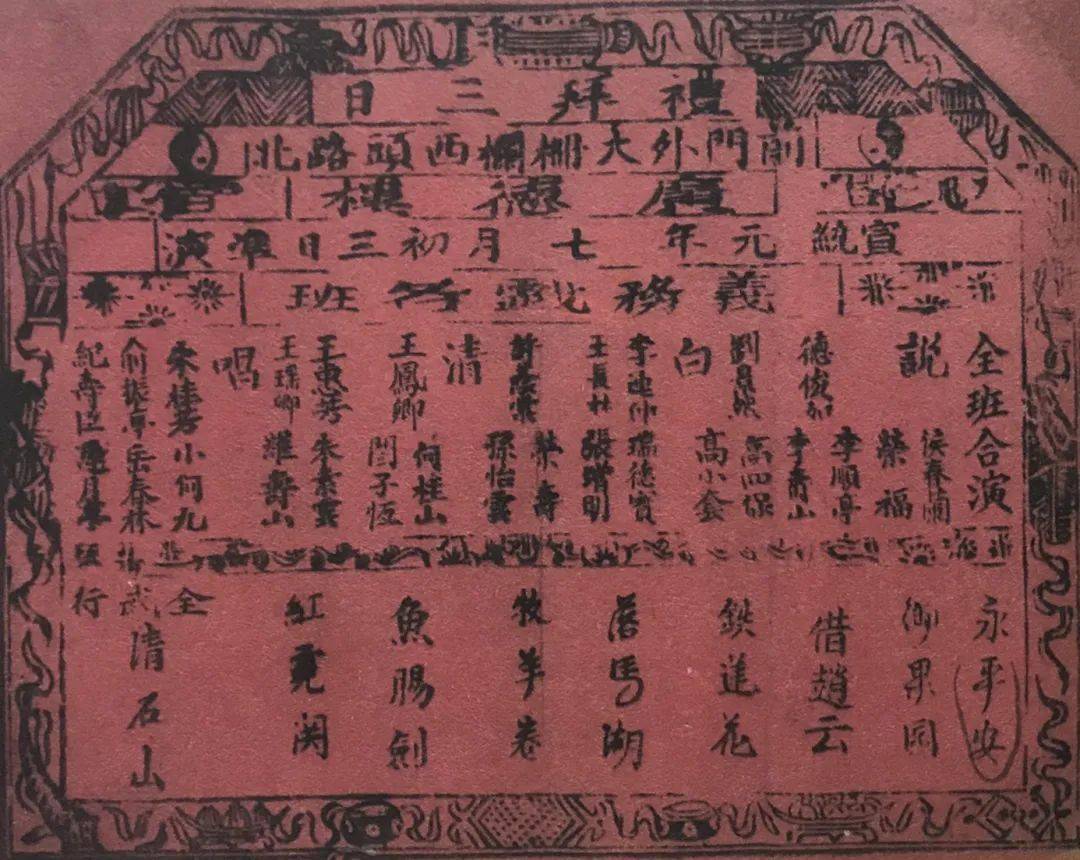 禮拜三日
前門外大柵欄西頭路北
廣德樓
宣統元年七月初三日準演
義務 班
全班合演
永平安
說
侯春蘭
榮福
御果園
德俊如
李順亭
李壽山
借趙云
劉景然
白
高四保
高小奎
鉄蓮花
李連仲
瑞德寶
王長林
張增明
落馬湖
許蔭棠
清
榮壽
孫怡雲
牧羊卷
王鳳卿
何桂山
閆子恆
魚腸劍
王惠芳
朱素雲
王瑤卿
羅壽山
唱
紅霓関
朱桂芳
小何九
俞振亭
岳春林
紀壽臣
全武行
清石山